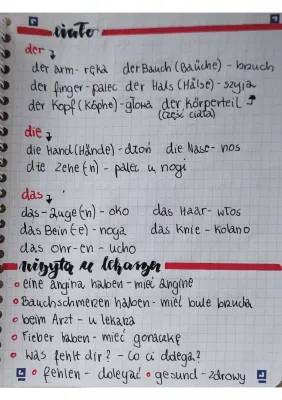 ciało
der
der arm - ręka der Bauch (Bäuche) - brzuch
der finger - palec der Hals (Hälse) - szyja
der Kopf (Köphe) - głowa der Körperteil -
(część ciała)
die
die Hand (Hände) - dłoń die Nase - nos
die Zehe (n) - palec u nogi
das
das - Auge (n) - oko das Haar - włos
das Bein (-e) - noga das Knie - kolano
das Ohr - en - ucho
wizyta u lekarza
eine angina haben - mieć anginę
Bauchschmerzen haben - mieć bule brzucha
beim Arzt - u lekarza
Fieber haben - mieć gorączkę
was fehlt dir? - Co ci dolega?
fehlen - dolegać gesund - zdrowy